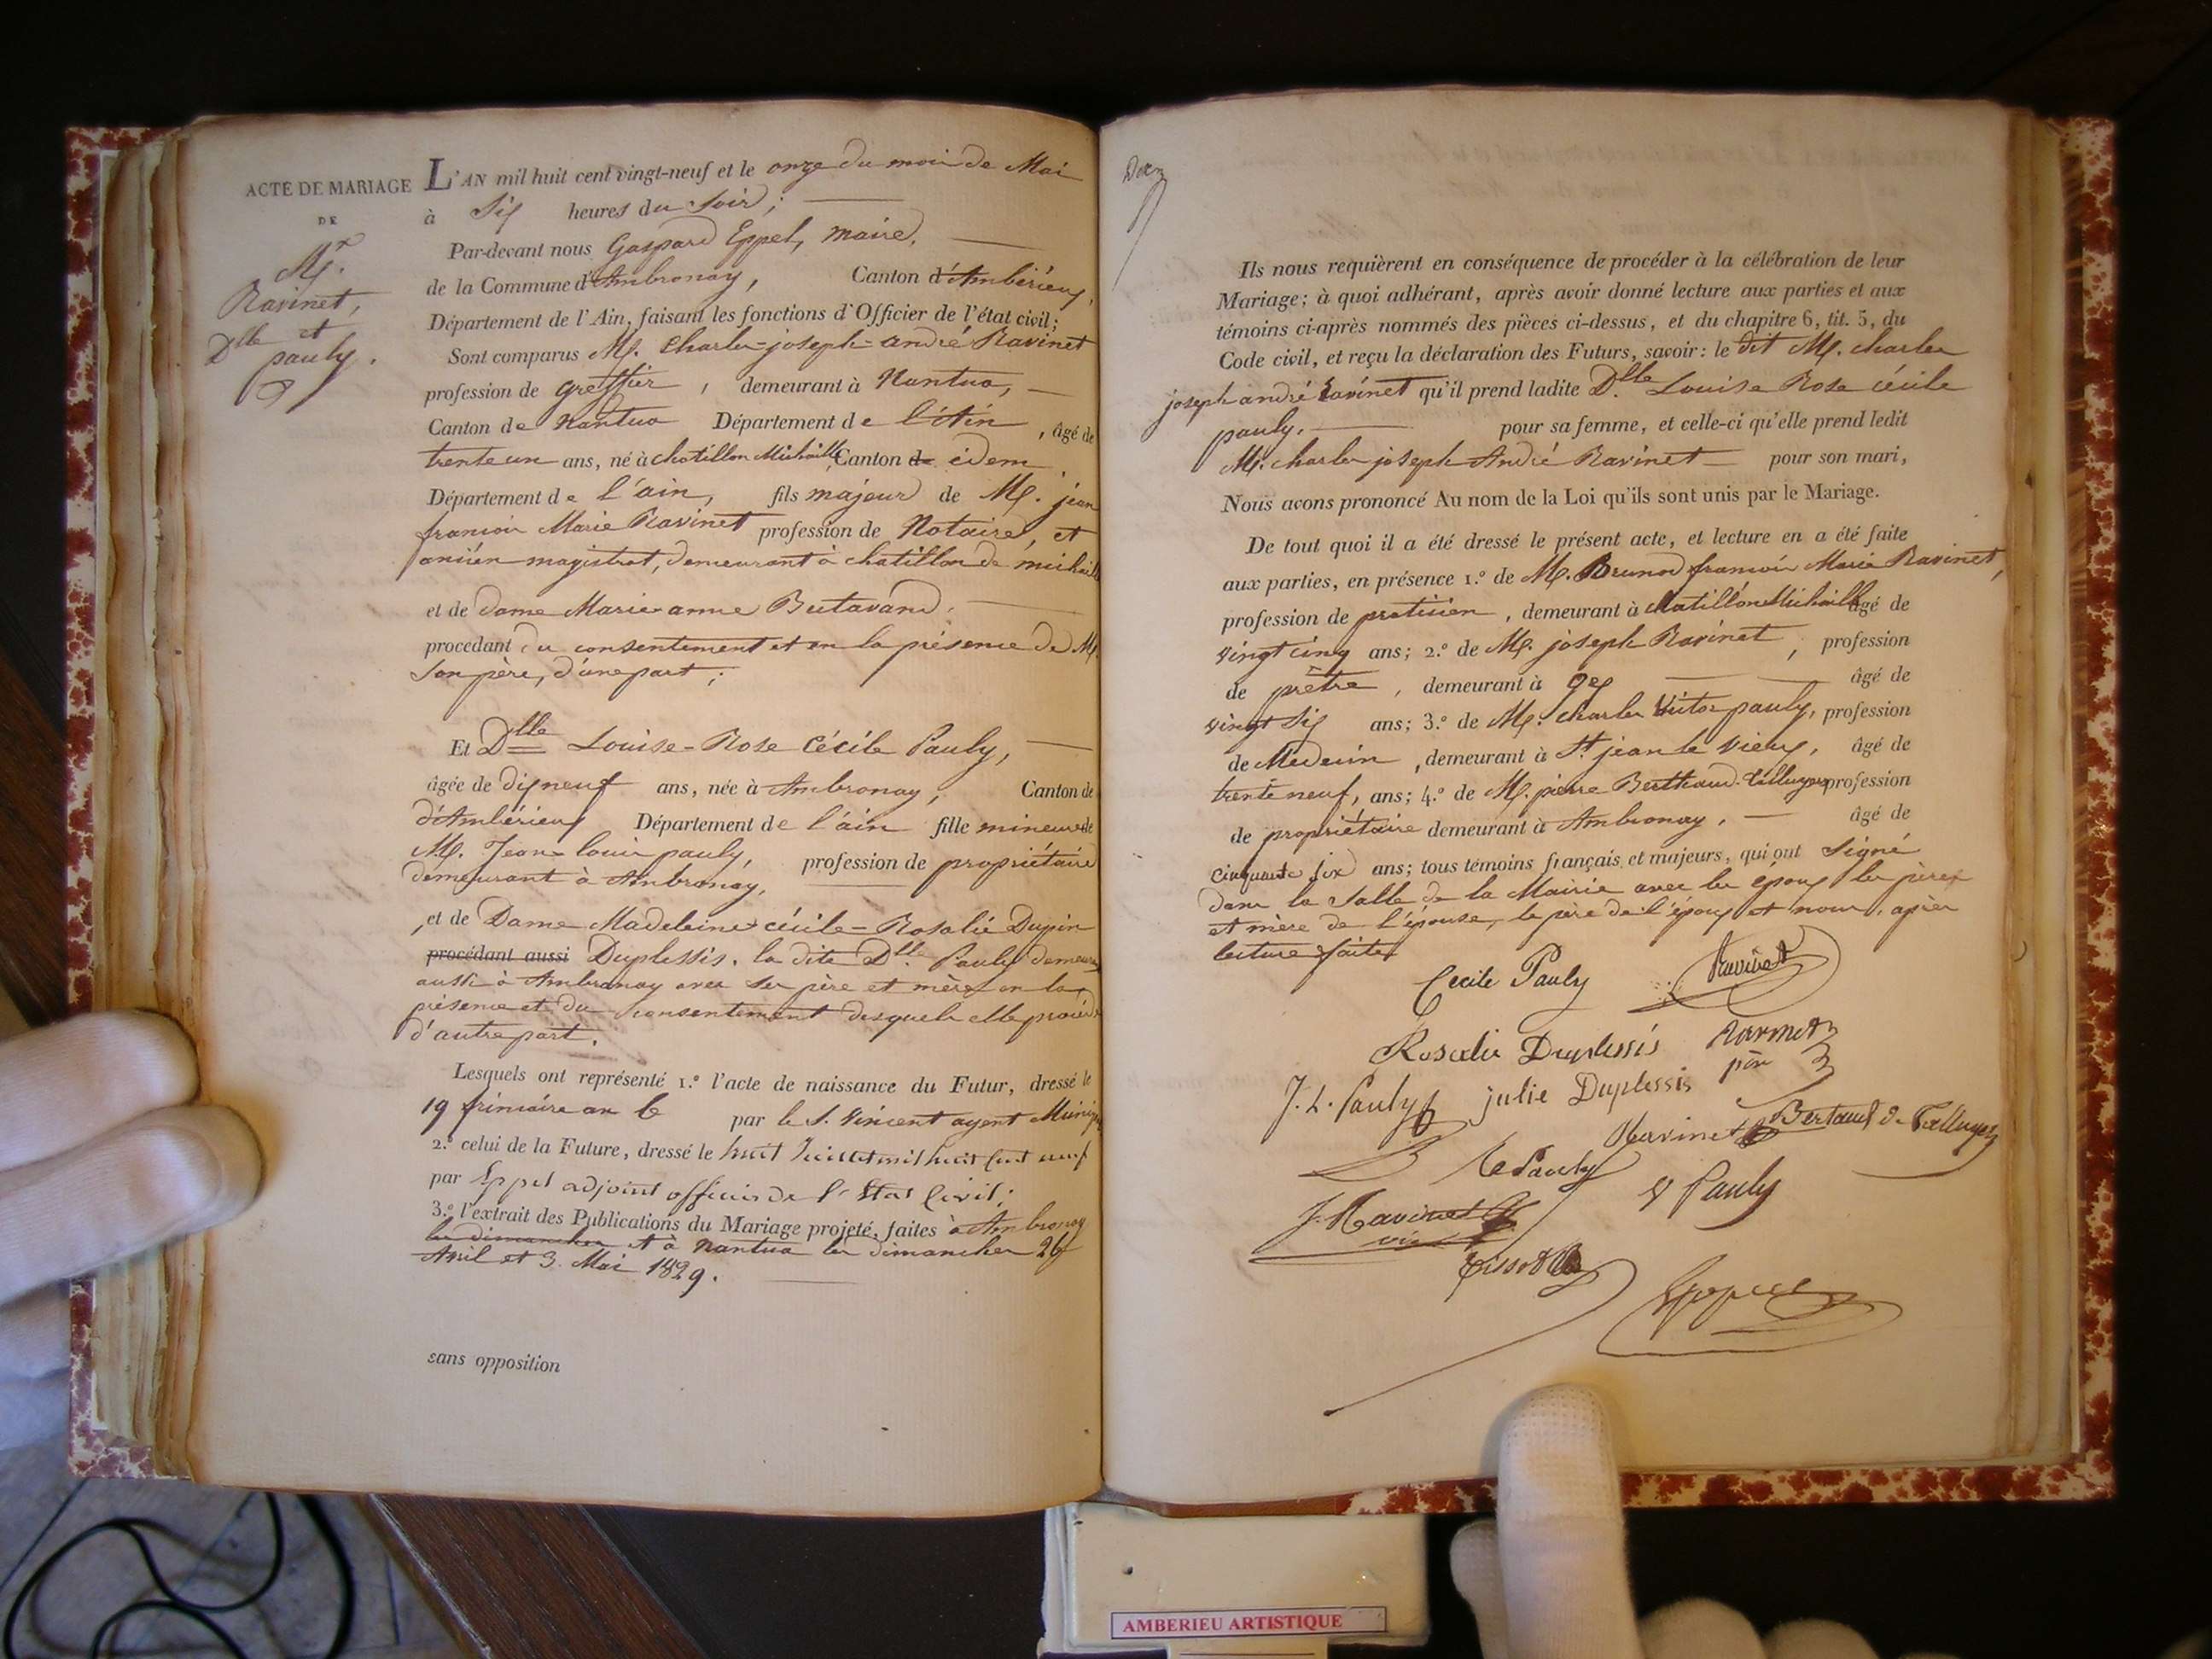 ACTE DE MARIAGE
DE
Mr.
Ravinet,
et
Dlle pauly.
L'AN mil huit cent vingt-neuf et le onze du mois de Mai
à Six heures du soir;
Par-devant nous Gaspard Eppel, maire,
de la Commune d'Ambronay, Canton d'Ambérieux,
Département de l'Ain, faisant les fonctions d'Officier de l'état civil;
Sont comparus M. Charles-joseph-andré Ravinet
profession de greffier, demeurant à Nantua,
Canton de Nantua Département de l'Ain, âgé de
trente un ans, né à chatillon Michaille Canton de idem
Département de l'ain, fils majeur de M. jean
francois Marie Ravinet profession de Notaire, et
ancien magistrat, demeurant à chatillon de michaille
et de dame Marie anne Butavand.
procedant du consentement et en la présence de M.
son père, d'une part;
Et Dlle Louise-Rose Cécile Pauly,
âgée de dix neuf ans, née à Ambronay, Canton de
d'Ambérieux Département de l'ain fille mineure de
M. Jean louis pauly, profession de propriétaire
demeurant à Ambronay,
, et de Dame Madeleine cécile-Rosalie Dupin
procédant aussi Duplessis. la dite Dlle Pauly demeurant
aussi à Ambronay avec ses père et mère en la
présence et du consentement desquels elle procède
d'autre part.
Lesquels ont représenté 1.º l'acte de naissance du Futur, dressé le
19 frimaire an 6 par le S. Vincent agent Municipal
2.º celui de la Future, dressé le huit Juillet mil huit cent neuf
par Eppel adjoint officier de l'Etat Civil;
3.º l'extrait des Publications du Mariage projeté, faites à Ambronay
les dimanches et à Nantua les dimanches 26
Avril et 3 Mai 1829.
sans opposition
Ils nous requièrent en conséquence de procéder à la célébration de leur
Mariage; à quoi adhérant, après avoir donné lecture aux parties et aux
témoins ci-après nommés des pièces ci-dessus, et du chapitre 6, tit. 5, du
Code civil, et reçu la déclaration des Futurs, savoir: le dit M. charles
joseph andré Ravinet qu'il prend ladite Dlle Louise Rose cécile
pauly, pour sa femme, et celle-ci qu'elle prend ledit
M. charles joseph André Ravinet pour son mari,
Nous avons prononcé Au nom de la Loi qu'ils sont unis par le Mariage.
De tout quoi il a été dressé le présent acte, et lecture en a été faite
aux parties, en présence 1.º de M. Bruno francois Marie Ravinet,
profession de praticien, demeurant à chatillon Michaille âgé de
vingt cinq ans; 2.º de M. joseph Ravinet, profession
de prêtre, demeurant à gex âgé de
vingt six ans; 3.º de M. charles Victor pauly, profession
de Medecin, demeurant à St. jean le vieux, âgé de
trente neuf, ans; 4.º de M. pierre Berthaud-talluyers profession
de propriétaire demeurant à Ambronay, âgé de
cinquante six ans; tous témoins français et majeurs, qui ont signé
dans la salle de la Mairie avec les époux les père
et mère de l'épouse, le père de l'époux et nous, après
lecture faite
Cecile Pauly Ravinet
Rosalie Duplessis Ravinet
père
J. L. Pauly julie Duplessis
Ravinet Bertaud de Talluyers
C Pauly V Pauly
J. Ravinet
vic
Tissot
Eppel
AMBERIEU ARTISTIQUE